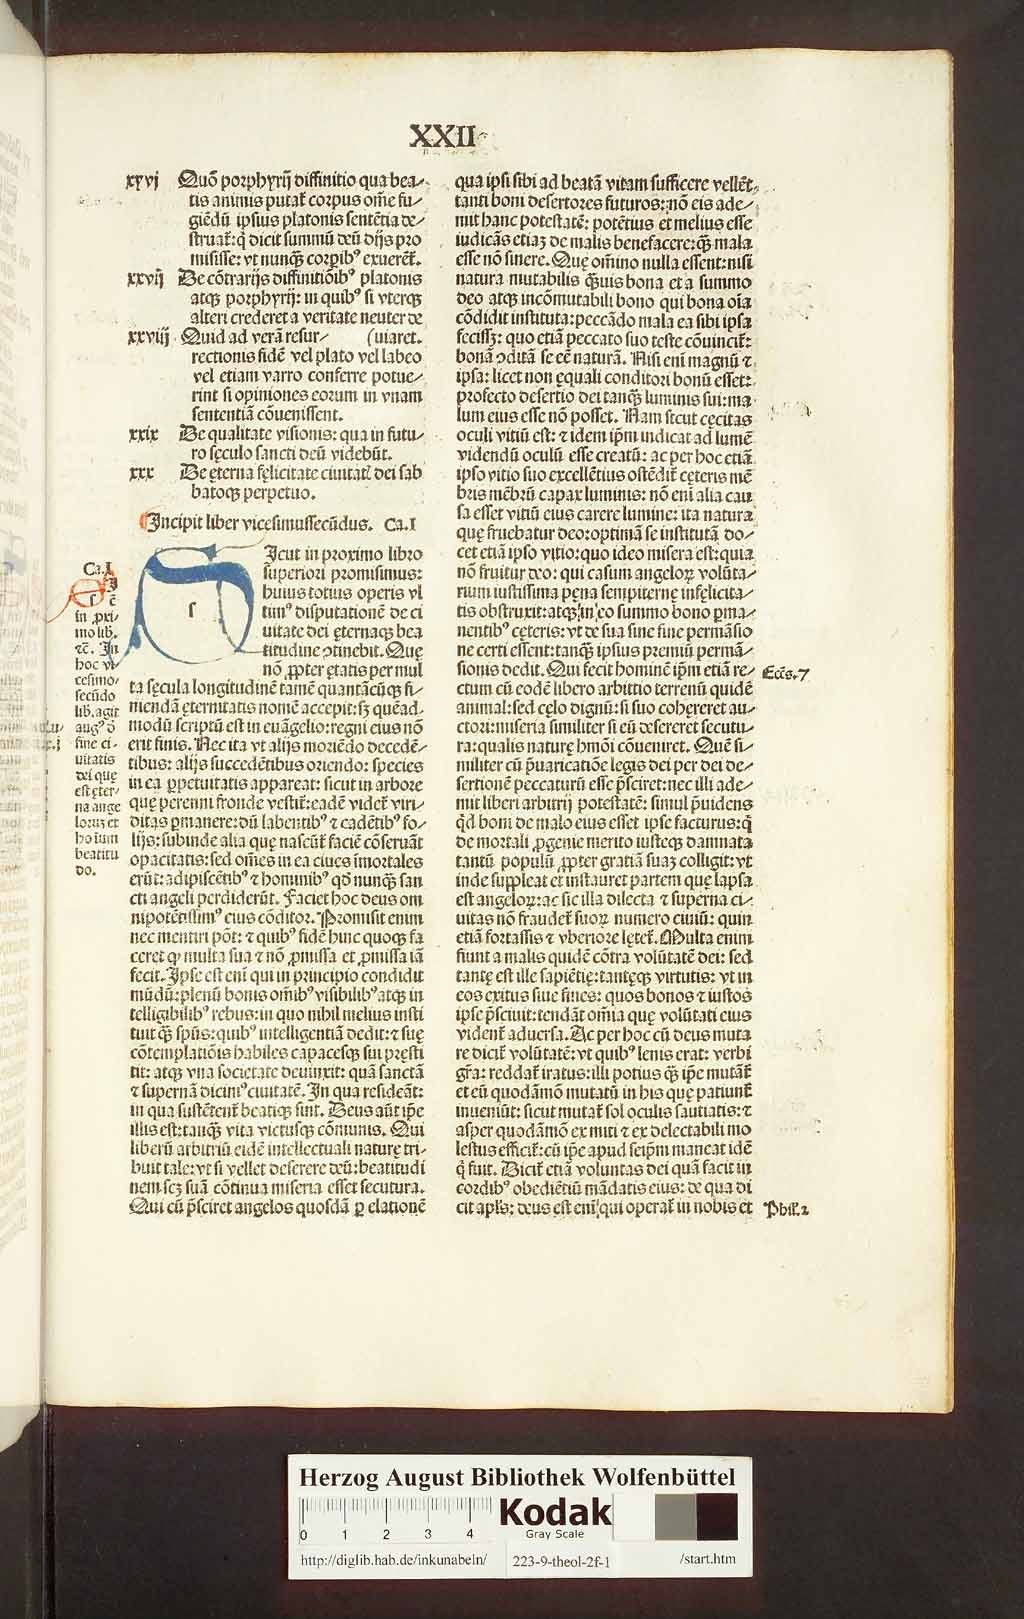 XXII
xxvj Quō porphyrij diffinitio qua bea-
tis animis putat corpus om̄e fu-
giēdū ipsius platonis sentētia de-
struat: q̇ dicit summū deū dijs pro
misisse: vt nunq̄ȝ corpibꝰ exuerēt.
xxvij De cōtrarijs diffinitiōibꝰ platonis
atqꝫ porphyrij: in quibꝰ si vterqꝫ
alteri crederet a veritate neuter de
xxviij Quid ad verā resur- (uiaret.
rectionis fidē vel plato vel labeo
vel etiam varro conferre potue-
rint si opiniones eorum in vnam
sententiā cōuenissent.
xxix De qualitate visionis: qua in futu-
ro sęculo sancti deū videbūt.
xxx De ęterna fęlicitate ciuitatꝭ dei sab
batoqꝫ perpetuo.
Incipit liber vicesimussecūdus. Ca.I
Icut in proximo libro
superiori promisimus:
s huius totius operis vl
timꝰ disputationē de ci
uitate dei ęternaqꝫ bea
titudine ↄtinebit. Quę
nō ꝓpter ętatis per mul
ta sęcula longitudinē tamē quantācūqꝫ fi-
niendā ęternitatis nomē accepit: sꝫ quēad-
modū scriptū est in euāgelio: regni eius nō
erit finis. Nec ita vt alijs moriēdo decedē-
tibus: alijs succedētibus oriendo: species
in ea ꝑpetuitatis appareat: sicut in arbore
quę perenni fronde vestit̄: eadē videt̄ viri-
ditas ꝑmanere: dū labentibꝰ ⁊ cadētibꝰ fo-
lijs: subinde alia quę nascūt̄ faciē cōseruāt
opacitatis: sed om̄es in ea ciues īmortales
erūt: adipiscētibꝰ ⁊ hominibꝰ qd̄ nunq̄ȝ san
cti angeli perdiderūt. Faciet hoc deus om
nipotētissimꝰ eius cōditor. Promisit enim
nec mentiri pōt: ⁊ quibꝰ fidē hinc quoqꝫ fa
ceret qꝫ multa sua ⁊ nō ꝓmissa et ꝓmissa iā
fecit. Ipse est enī qui in principio condidit
mūdū: plenū bonis om̄ibꝰ visibilibꝰ atqꝫ in
telligibilibꝰ rebus: in quo nihil melius insti
tuit q̄ȝ spūs: quibꝰ intelligentiā dedit: ⁊ suę
cōtemplatiōis habiles capacesqꝫ sui pręsti
tit: atqꝫ vna societate deuinxit: quā sanctā
⁊ supernā dicimꝰ ciuitatē. In qua resideāt:
in qua sustētent̄ beatiqꝫ sint. Deus aūt ip̄e
illis est: tanq̄ȝ vita victusqꝫ cōmunis. Qui
liberū arbitriū eidē intellectuali naturę tri-
buit tale: vt si vellet deserere deū: beatitudi
nem scꝫ suā cōtinua miseria esset secutura.
Qui cū p̄sciret angelos quosdā ꝑ elationē
Ca.I
I
s ē
in ꝓxi-
mo lib.
⁊c̄. In
hoc vi-
cesimo-
secūdo
lib. agit
augꝰ ō
fine ci-
uitatis
dei quę
est ęter-
na ange
loruꝫ et
hoīum
beatitu
do.
qua ipsi sibi ad beatā vitam sufficere vellēt
tanti boni desertores futuros: nō eis ade-
mit hanc potestatē: potētius et melius esse
iudicās etiaȝ de malis benefacere: q̄ȝ mala
esse nō sinere. Quę om̄ino nulla essent: nisi
natura mutabilis q̄ȝuis bona et a summo
deo atqꝫ incōmutabili bono qui bona oīa
cōdidit instituta: peccādo mala ea sibi ipsa
fecissꝫ: quo etiā peccato suo teste cōuincit̄:
bonā ↄditā se eē naturā. Nisi enī magnū ⁊
ipsa: licet non ęquali conditori bonū esset:
profecto desertio dei tanq̄ȝ luminis sui: ma-
lum eius esse nō posset. Nam sicut cęcitas
oculi vitiū est: ⁊ idem ip̄m indicat ad lumē
videndū oculū esse creatū: ac per hoc etiā
ipso vitio suo excellētius ostēdit̄ cęteris mē
bris mēbrū capax luminis: nō enī alia cau
sa esset vitiū eius carere lumine: ita natura
quę fruebatur deo: optimā se institutā do-
cet etiā ipso vitio: quo ideo misera est: quia
nō fruitur deo: qui casum angeloꝝ volūta-
rium iustissima pęna sempiternę infęlicita-
tis obstruxit: atqꝫ in eo summo bono ꝑma-
nentibꝰ cęteris: vt de sua sine fine permāsio
ne certi essent: tanq̄ȝ ipsius premiū permā-
sionis dedit. Qui fecit hominē ip̄m etiā re-
ctum cū eodē libero arbittio terrenū quidē
animal: sed cęlo dignū: si suo cohęreret au-
ctori: miseria similiter si eū desereret secutu-
ra: qualis naturę hmōi cōueniret. Quē si-
militer cū p̄uaricatiōe legis dei per dei de-
sertionē peccaturū esse p̄sciret: nec illi ade-
mit liberi arbitrij potestatē: simul p̄uidens
qd̄ boni de malo eius esset ipse facturus: q̇
de mortali ꝓgenie merito iusteqꝫ damnata
tantū populū ꝓpter gratiā suaȝ colligit: vt
inde suppleat et instauret partem quę lapsa
est angeloꝝ: ac sic illa dilecta ⁊ superna ci-
uitas nō fraudet̄ suoꝝ numero ciuiū: quin
etiā fortassis ⁊ vberiore lętet̄. Multa enim
fiunt a malis quidē cōtra volūtatē dei: sed
tantę est ille sapiētię: tantęqꝫ virtutis: vt in
eos exitus siue fines: quos bonos ⁊ iustos
ipse p̄sciuit: tendāt om̄ia quę volūtati eius
vident̄ aduersa. Ac per hoc cū deus muta
re dicit̄ volūtatē: vt quibꝰ lenis erat: verbi
gr̄a: reddat̄ iratus: illi potius q̄ȝ ip̄e mutāt̄
et eū quodāmō mutatū in his quę patiunt̄
inueniūt: sicut mutat̄ sol oculis sautiatis: ⁊
asper quodāmō ex miti ⁊ ex delectabili mo
lestus efficit̄: cū ip̄e apud seip̄m maneat idē
q̇ fuit. Dicit̄ etiā voluntas dei quā facit in
cordibꝰ obediētiū mādatis eius: de qua di
cit apl̄s: deus est enī qui operat̄ in nobis et
Eccs. 7
Phil'. 2
Herzog August Bibliothek Wolfenbüttel
0 1 2 3 4
Kodak
Gray Scale
http://diglib.hab.de/inkunabeln/ 223-9-theol-2f-1 /start.htm